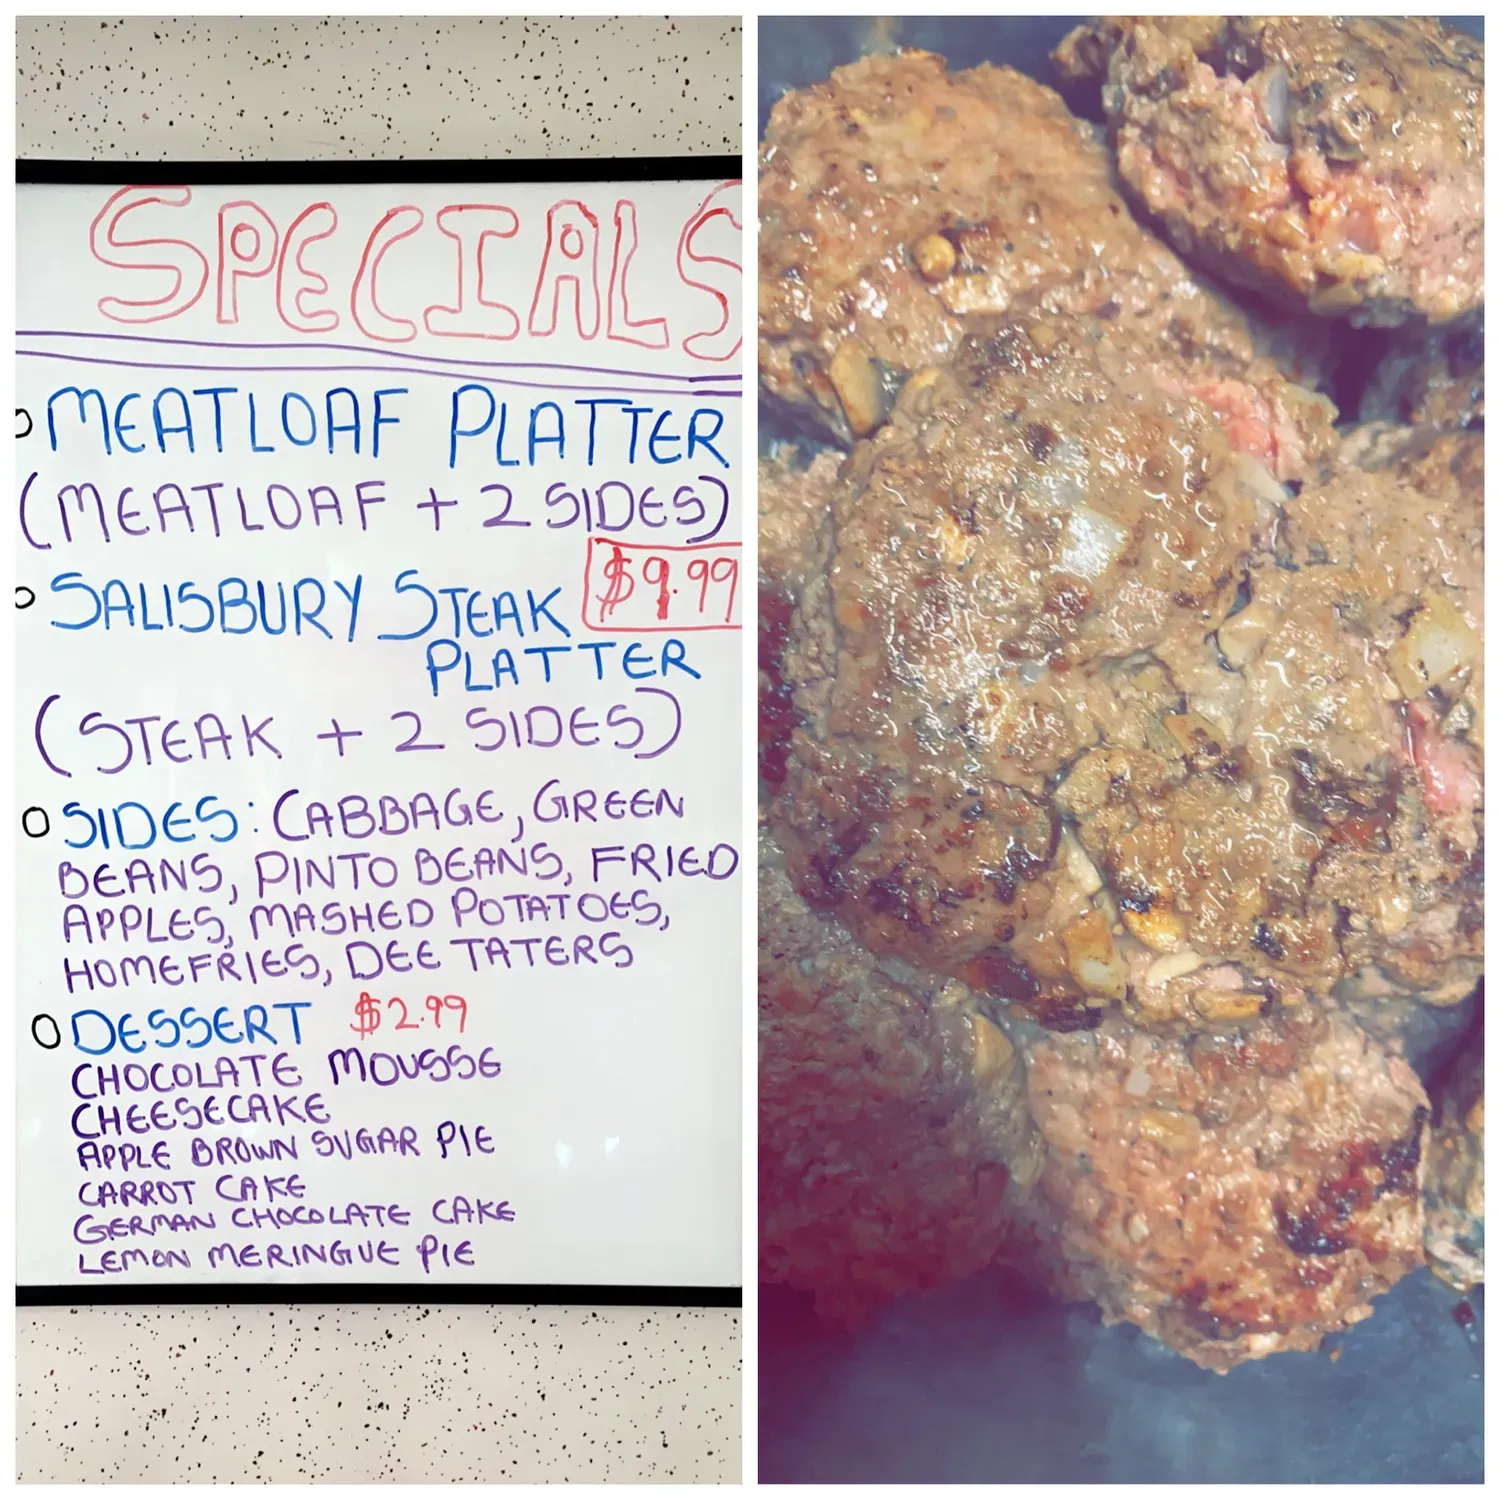 SPECIALS
O MEATLOAF PLATTER
(MEATLOAF + 2 SIDES)
$9.99
O SALISBURY STEAK
PLATTER
(STEAK + 2 SIDES)
O SIDES: CABBAGE, GREEN
BEANS, PINTO BEANS, FRIED
APPLES, MASHED POTATOES,
HOMEFRIES, DEE TATERS
O DESSERT $2.99
CHOCOLATE MOUSSE
CHEESECAKE
APPLE BROWN SUGAR PIE
CARROT CAKE
GERMAN CHOCOLATE CAKE
LEMON MERINGUE PIE